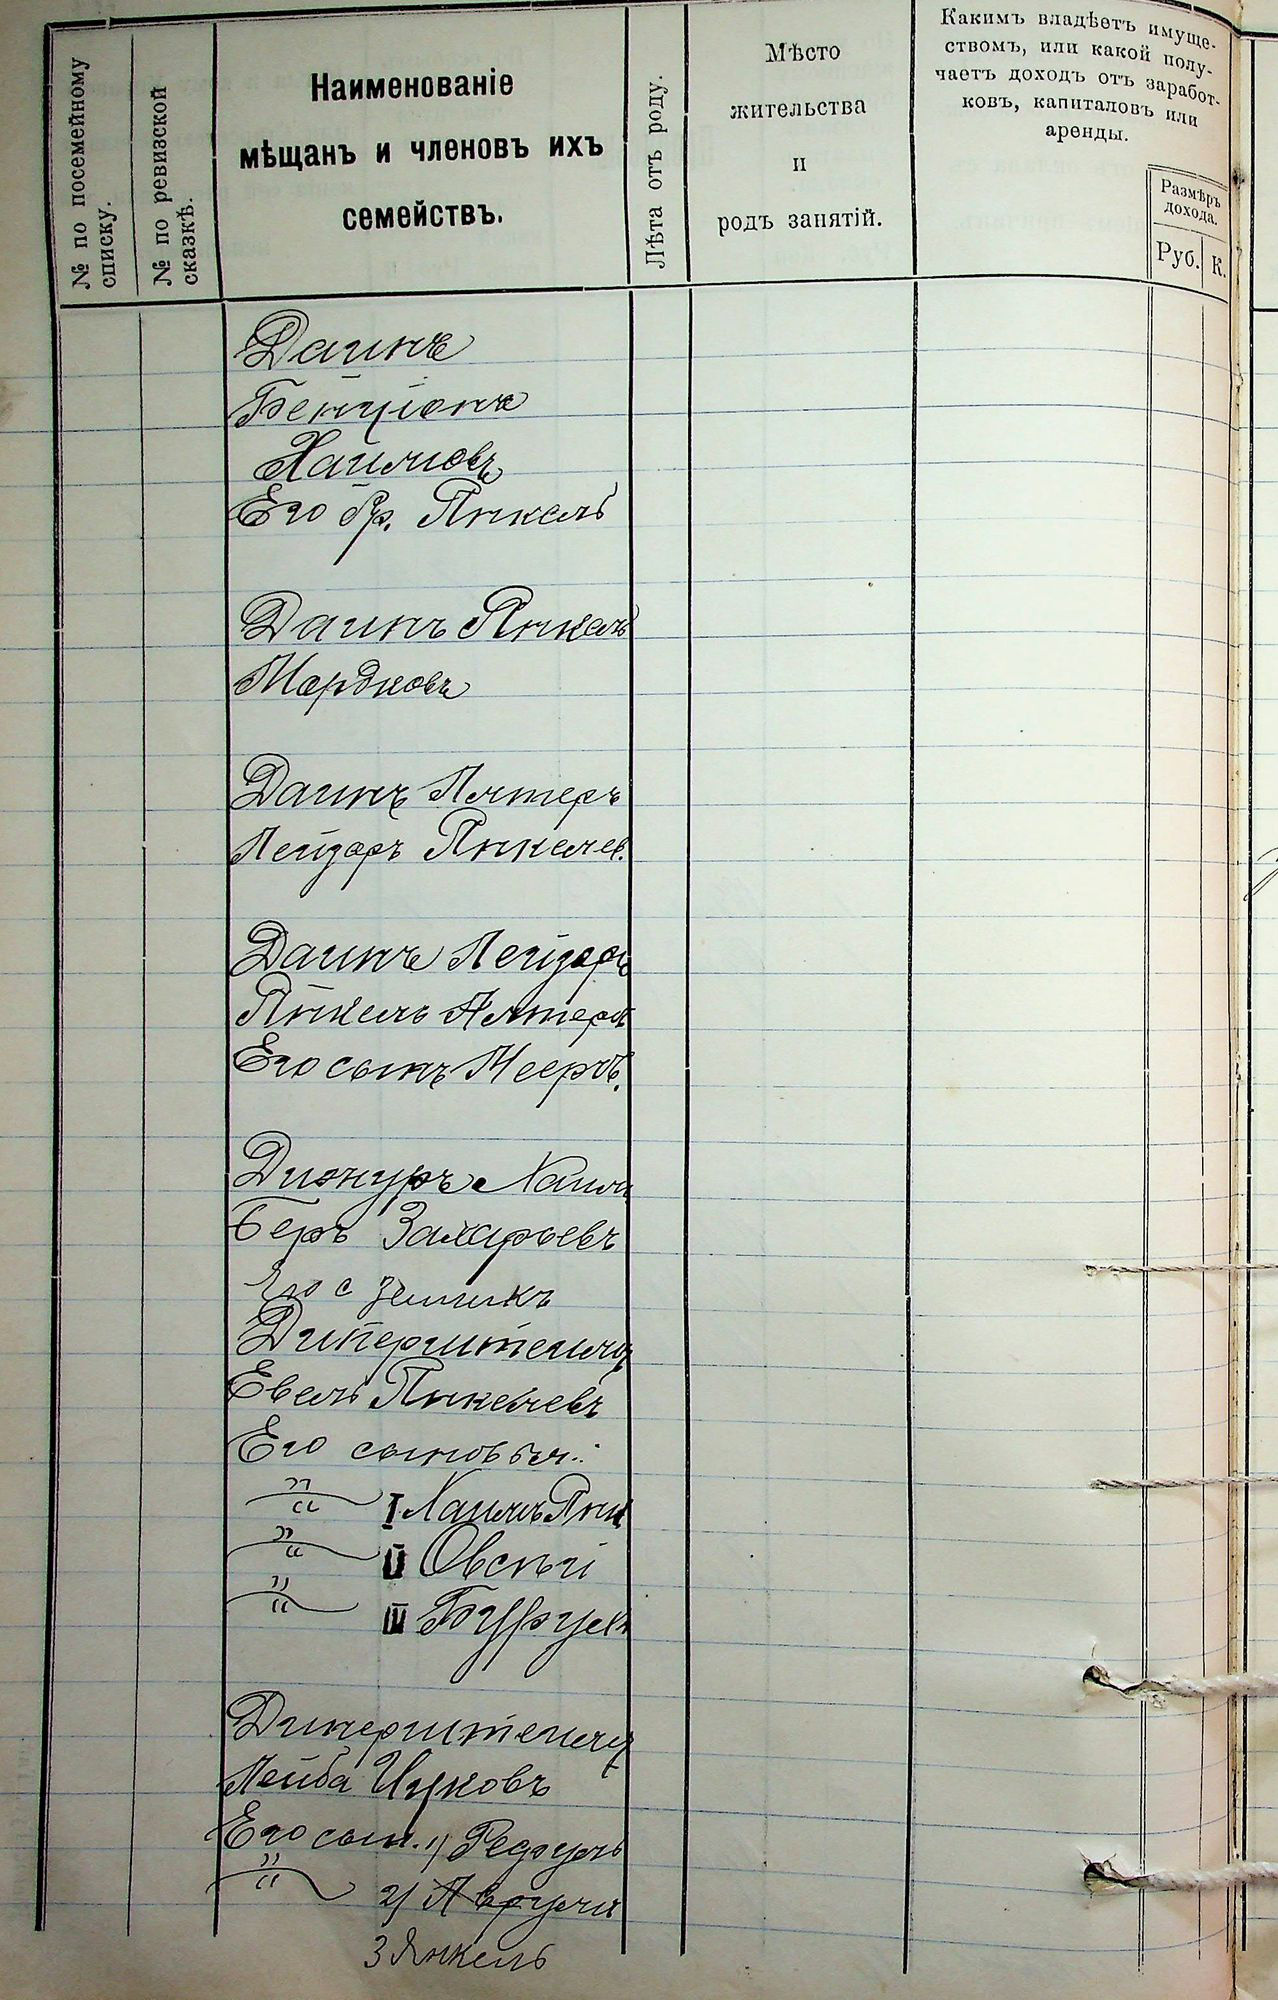 № по посемейному
списку.
№ по ревизской
сказкѣ.
Наименованіе
мѣщанъ и членовъ ихъ
семействъ.
Лѣта отъ роду.
Мѣсто
жительства
и
родъ занятій.
Какимъ владѣетъ имуще-
ствомъ, или какой полу-
чаетъ доходъ отъ заработ-
ковъ, капиталовъ или
аренды.
Размѣръ
дохода.
Руб.
К.
Даинъ
Бенціонъ
Хаимовъ
Его бр. Янкель
Даинъ Янкель
Мордковъ
Даинъ Алтеръ
Лейзоръ Янкелев.
Даинъ Лейзоръ
Янкель Алтеръ
Его сынъ Мееръ.
Дизнуръ Хаим
Беръ Захарьевъ
Его с Зелликъ
Диперштейнъ
Евель Янкелевъ
Его сыновья:
I Хаимъ Янк
II Овсѣй
III
Диперштейнъ
Лейба Ицковъ
Его сын. 1)
2)
3 Янкель